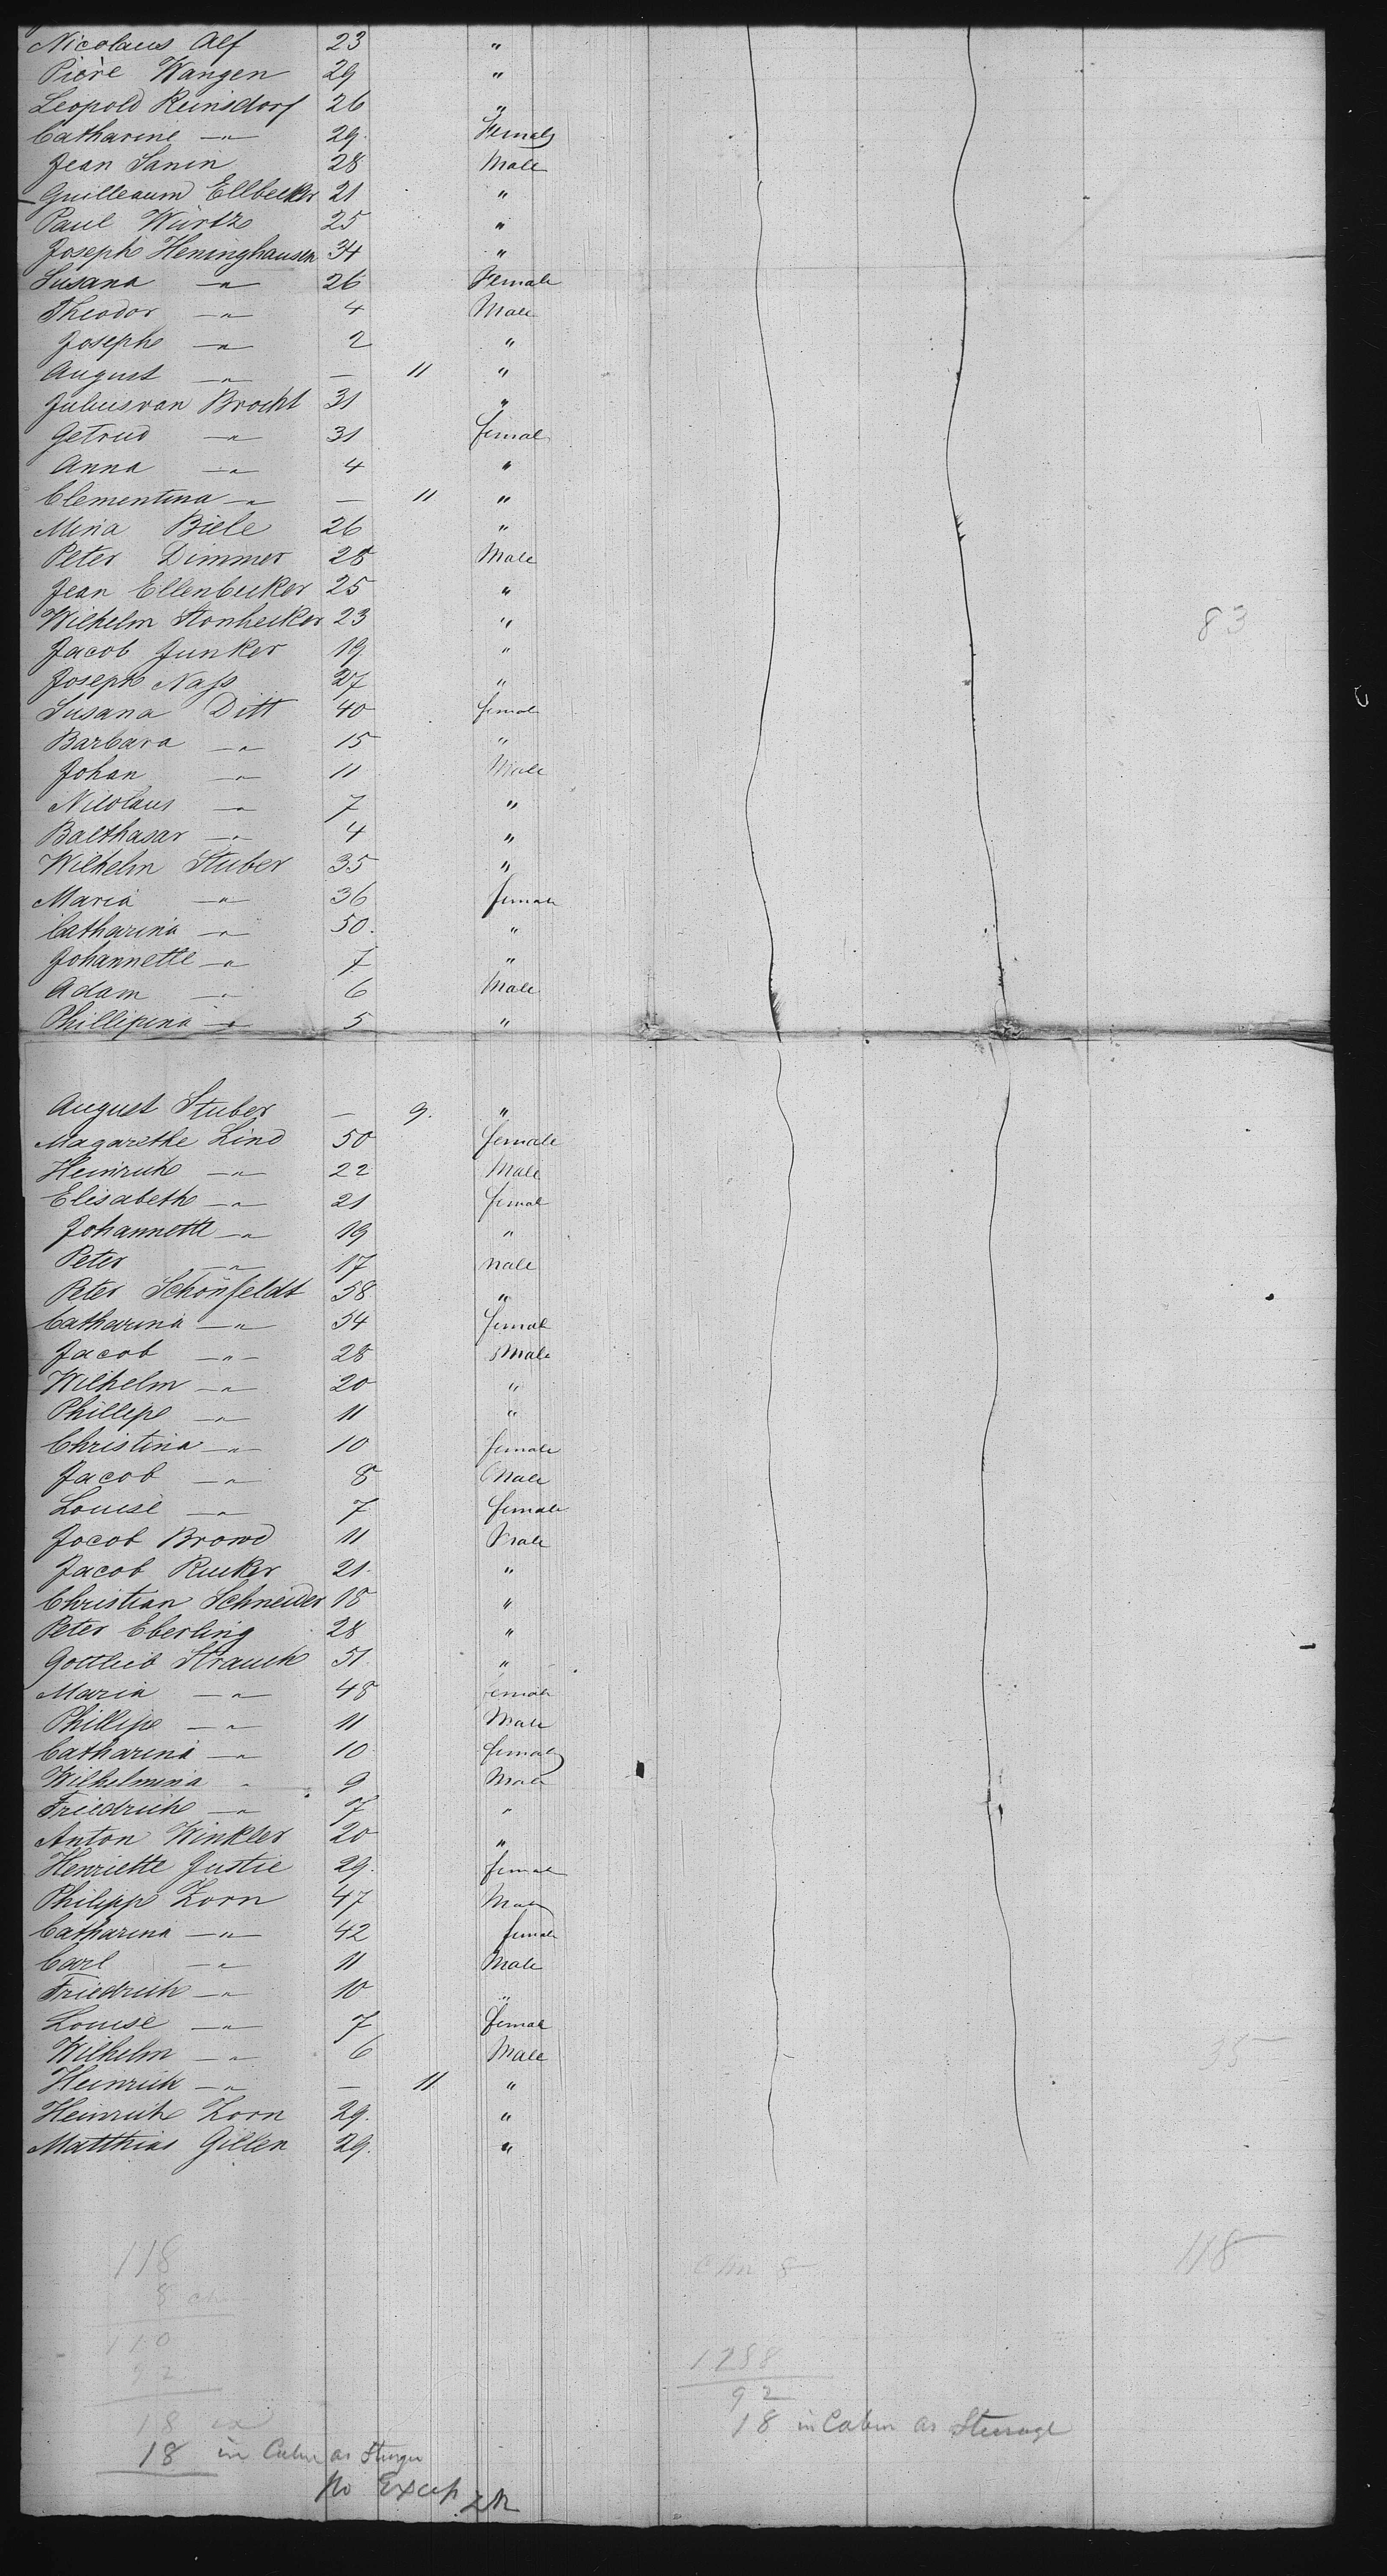 Nicolaus Alf 23 "
Pière Wangen 29 "
Leopold Reinsdorf 26 "
Catharine —"— 29. Female
Jean Sanin 28 Male
Guilleaum Ellbecker 21 "
Paul Würtz 25 "
Joseph Heninghausen 34 "
Susana —"— 26 Female
Theodor —"— 4 Male
Joseph —"— 2 "
August —"— — 11 "
Julius van Brocht 31 "
Getrud —"— 31 female
Anna —"— 4 "
Clementina —"— — 11 "
Mina Biele 26 "
Peter Dimmer 28 Male
Jean Ellenbecker 25 "
Wilhelm Stonhecker 23 "
83
Jacob Junker 19 "
Joseph Nass 27 "
Susana Ditt 40 female
Barbara —"— 15 "
Johan —"— 11 Male
Nicolaus —"— 7 "
Balthasar —"— 4 "
Wilhelm Stuber 35 "
Maria —"— 36 female
Catharina —"— 50. "
Johannette —"— 7 "
Adam —"— 6 Male
Phillipina —"— 5 "
August Stuber — 9. "
Magarethe Lind 50 female
Heinrich —"— 22 Male
Elisabeth —"— 21 female
Johannette —"— 19 "
Peter —"— 17 Male
Peter Schönfeldt 58 "
Catharina —"— 54 female
Jacob —"— 28 Male
Wilhelm —"— 20 "
Phillipe —"— 11 "
Christina —"— 10 female
Jacob —"— 8 Male
Louise —"— 7 female
Jocob Browd 11 Male
Jacob Rucker 21. "
Christian Schneider 18 "
Peter Eberling 28 "
Gottlieb Strauch 51. "
Maria —"— 48 female
Phillipe —"— 11 Male
Catharina —"— 10 female
Wilhelmina " 9 Male
Friedrich —"— 7 "
Anton Winkler 20 "
Henriette Justie 29. female
Philipp Zorn 47 Male
Catharina —"— 42 female
Carl —"— 11 Male
Friedrich —"— 10 "
Louise —"— 7 female
Wilhelm —"— 6 Male
35
Heinrich —"— — 11 "
Heinrich Zorn 29. "
Matthias Gillen 29. "
118
118
8 ch
Chn 8
110
92
1288
92
18 in Cabin as Steerage
18 ex
18 in Cabin as Sterage
No Excep